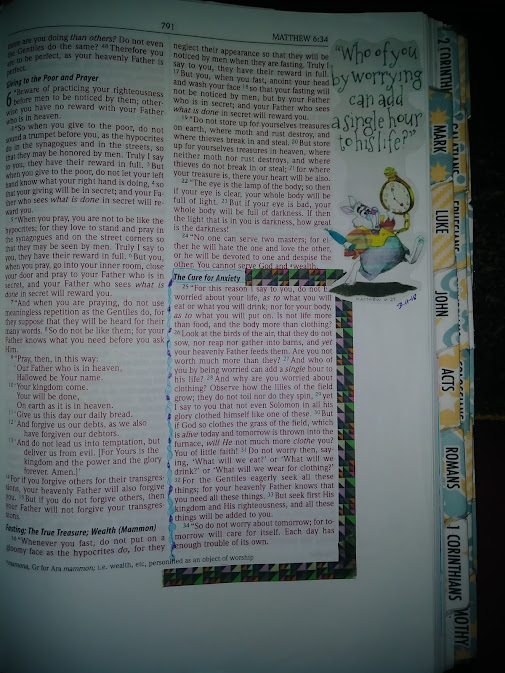 791
MATTHEW 6:34
are you doing than others? Do not even
the Gentiles do the same? 48 Therefore you
are to be perfect, as your heavenly Father is
perfect.
Giving to the Poor and Prayer
6 "Beware of practicing your righteousness
before men to be noticed by them; other-
wise you have no reward with your Father
who is in heaven.
2 "So when you give to the poor, do not
sound a trumpet before you, as the hypocrites
do in the synagogues and in the streets, so
that they may be honored by men. Truly I say
to you, they have their reward in full. 3 But
when you give to the poor, do not let your left
hand know what your right hand is doing, 4 so
that your giving will be in secret; and your Fa-
ther who sees what is done in secret will re-
ward you.
5 "When you pray, you are not to be like the
hypocrites; for they love to stand and pray in
the synagogues and on the street corners so
that they may be seen by men. Truly I say to
you, they have their reward in full. 6 But you,
when you pray, go into your inner room, close
your door and pray to your Father who is in
secret, and your Father who sees what is
done in secret will reward you.
7 "And when you are praying, do not use
meaningless repetition as the Gentiles do, for
they suppose that they will be heard for their
many words. 8 So do not be like them; for your
Father knows what you need before you ask
Him.
9 "Pray, then, in this way:
'Our Father who is in heaven,
Hallowed be Your name.
10 'Your kingdom come.
Your will be done,
On earth as it is in heaven.
11 'Give us this day our daily bread.
12 'And forgive us our debts, as we also
have forgiven our debtors.
13 'And do not lead us into temptation, but
deliver us from evil. [For Yours is the
kingdom and the power and the glory
forever. Amen.]'
14 For if you forgive others for their transgres-
sions, your heavenly Father will also forgive
you. 15 But if you do not forgive others, then
your Father will not forgive your transgres-
sions.
Fasting; The True Treasure; Wealth (Mammon)
16 "Whenever you fast, do not put on a
gloomy face as the hypocrites do, for they
neglect their appearance so that they will be
noticed by men when they are fasting. Truly I
say to you, they have their reward in full.
17 But you, when you fast, anoint your head
and wash your face 18 so that your fasting will
not be noticed by men, but by your Father
who is in secret; and your Father who sees
what is done in secret will reward you.
19 "Do not store up for yourselves treasures
on earth, where moth and rust destroy, and
where thieves break in and steal. 20 But store
up for yourselves treasures in heaven, where
neither moth nor rust destroys, and where
thieves do not break in or steal; 21 for where
your treasure is, there your heart will be also.
22 "The eye is the lamp of the body; so then
if your eye is clear, your whole body will be
full of light. 23 But if your eye is bad, your
whole body will be full of darkness. If then
the light that is in you is darkness, how great
is the darkness!
24 "No one can serve two masters; for ei-
ther he will hate the one and love the other,
or he will be devoted to one and despise the
other. You cannot serve God and wealth.
The Cure for Anxiety
25 "For this reason I say to you, do not be
worried about your life, as to what you will
eat or what you will drink; nor for your body,
as to what you will put on. Is not life more
than food, and the body more than clothing?
26 Look at the birds of the air, that they do not
sow, nor reap nor gather into barns, and yet
your heavenly Father feeds them. Are you not
worth much more than they? 27 And who of
you by being worried can add a single hour to
his life? 28 And why are you worried about
clothing? Observe how the lilies of the field
grow; they do not toil nor do they spin, 29 yet
I say to you that not even Solomon in all his
glory clothed himself like one of these. 30 But
if God so clothes the grass of the field, which
is alive today and tomorrow is thrown into the
furnace, will He not much more clothe you?
You of little faith! 31 Do not worry then, say-
ing, 'What will we eat?' or 'What will we
drink?' or 'What will we wear for clothing?'
32 For the Gentiles eagerly seek all these
things; for your heavenly Father knows that
you need all these things. 33 But seek first His
kingdom and His righteousness, and all these
things will be added to you.
34 "So do not worry about tomorrow; for to-
morrow will care for itself. Each day has
enough trouble of its own.
Gr for Ara mammon; i.e. wealth, etc, personified as an object of worship
"Who of you
by worrying
can add
a single hour
to his life?"
2 CORINTH
MARK
LUKE
JOHN
ACTS
ROMANS
1 CORINTHANS
MOTHY